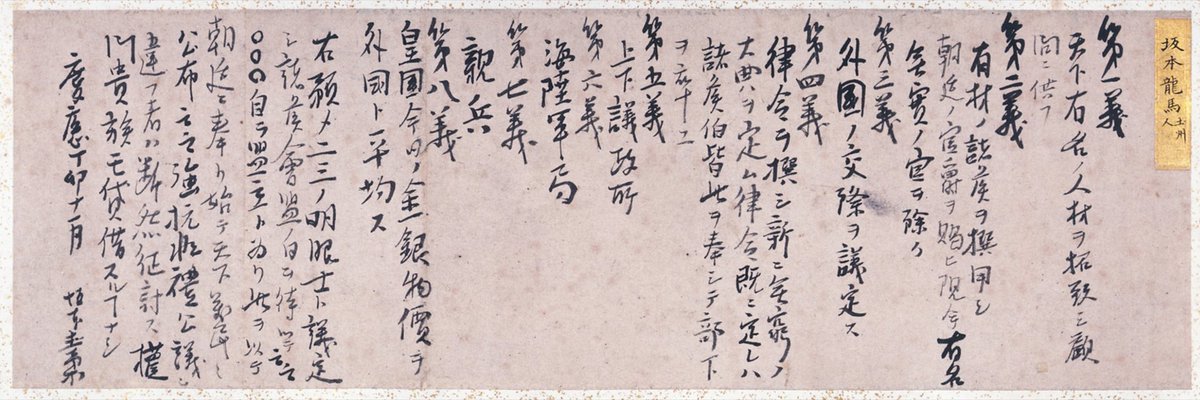 坂本龍馬 土州人
第一義
天下有名ノ人材ヲ招致シ顧
問ニ供フ
第二義
有材ノ諸侯ヲ撰用シ
朝廷ノ官爵ヲ賜ヒ現今有名
無實ノ官ヲ除ク
第三義
外國ノ交際ヲ議定ス
第四義
律令ヲ撰シ新ニ無窮ノ
大典ヲ定ム律令既ニ定レハ
諸侯伯皆此ヲ奉シテ部下
ヲ率ユ
第五義
上下議政所
第六義
海陸軍局
第七義
親兵
第八義
皇國今日ノ金銀物價ヲ
外國ト平均ス
右預メ二三ノ明眼士ト議定
シ諸侯會盟ノ日ヲ待ツテ云云
〇〇〇自ラ盟主ト為リ此ヲ以テ
朝廷ニ奉リ始テ天下萬民ニ
公布云云強抗非禮公議ニ
違フ者ハ断然征討ス權
門貴族モ貸借スルヿナシ
慶應丁卯十一月 坂本直柔